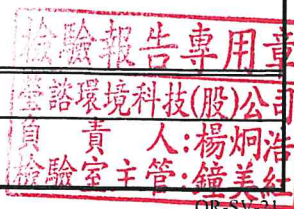 檢驗報告專用章
瑩諮環境科技(股)公司
負責人:楊炯浩
檢驗室主管:鐘美紅
QR-SV-21